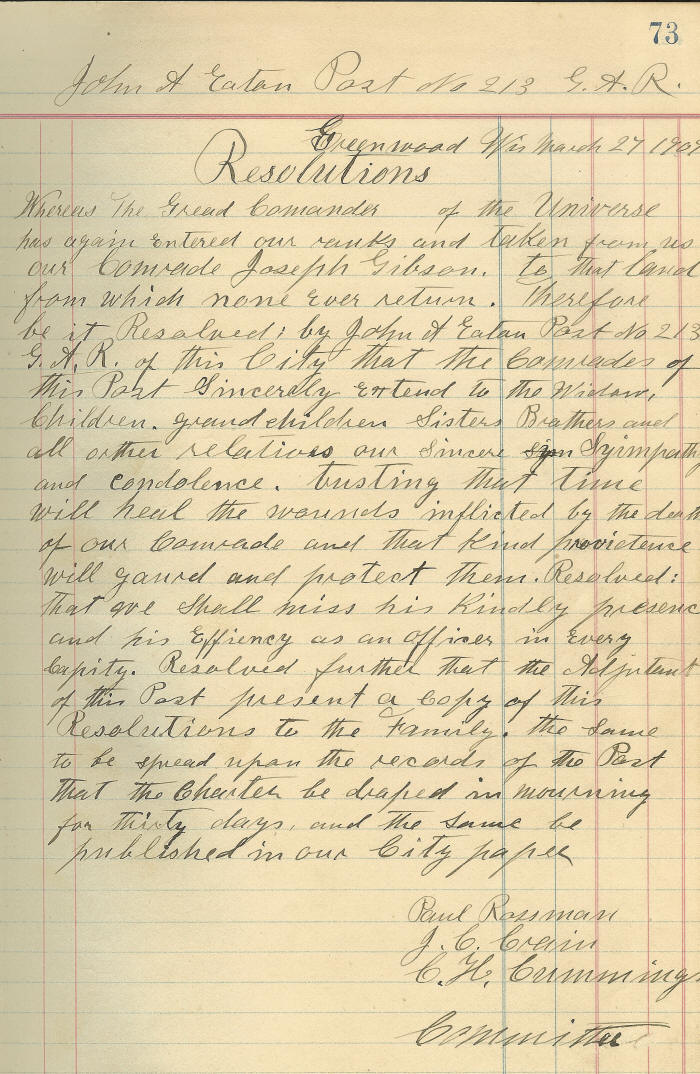 73
John A Eaton Post No 213 G. A. R.
Greenwood Wis March 27 190
Resolutions
Whereas The Gread Comander of the Universe
has again Entered our ranks and taken from us
our Comrade Joseph Gibson. to that land
from which none Ever return. Therefore
be it Resolved; by John A Eaton Post No 213
G. A. R. of this City that the Comrades of
this Post Sincerely Extend to the Widow,
Children. grandchildren Sisters Brothers and
all orther relatives our Sincere syn Syimpathy
and condolence. trusting that time
will heal the wounds inflicted by the death
of our Comrade and that kind providence
will gaurd and protect them. Resolved:
that we Shall miss his Kindly presenc
and his Effiency as an officer in Every
Capity. Resolved further that the Adjutant
of this Post present a Copy of this
Resolutions to the Family. the same
to be spread upon the records of the Post
that the Charter be draped in mourning
for thirty days, and the same be
published in our City paper
Paul Rossman
J. C. Crain
C. H. Cummings
Committee